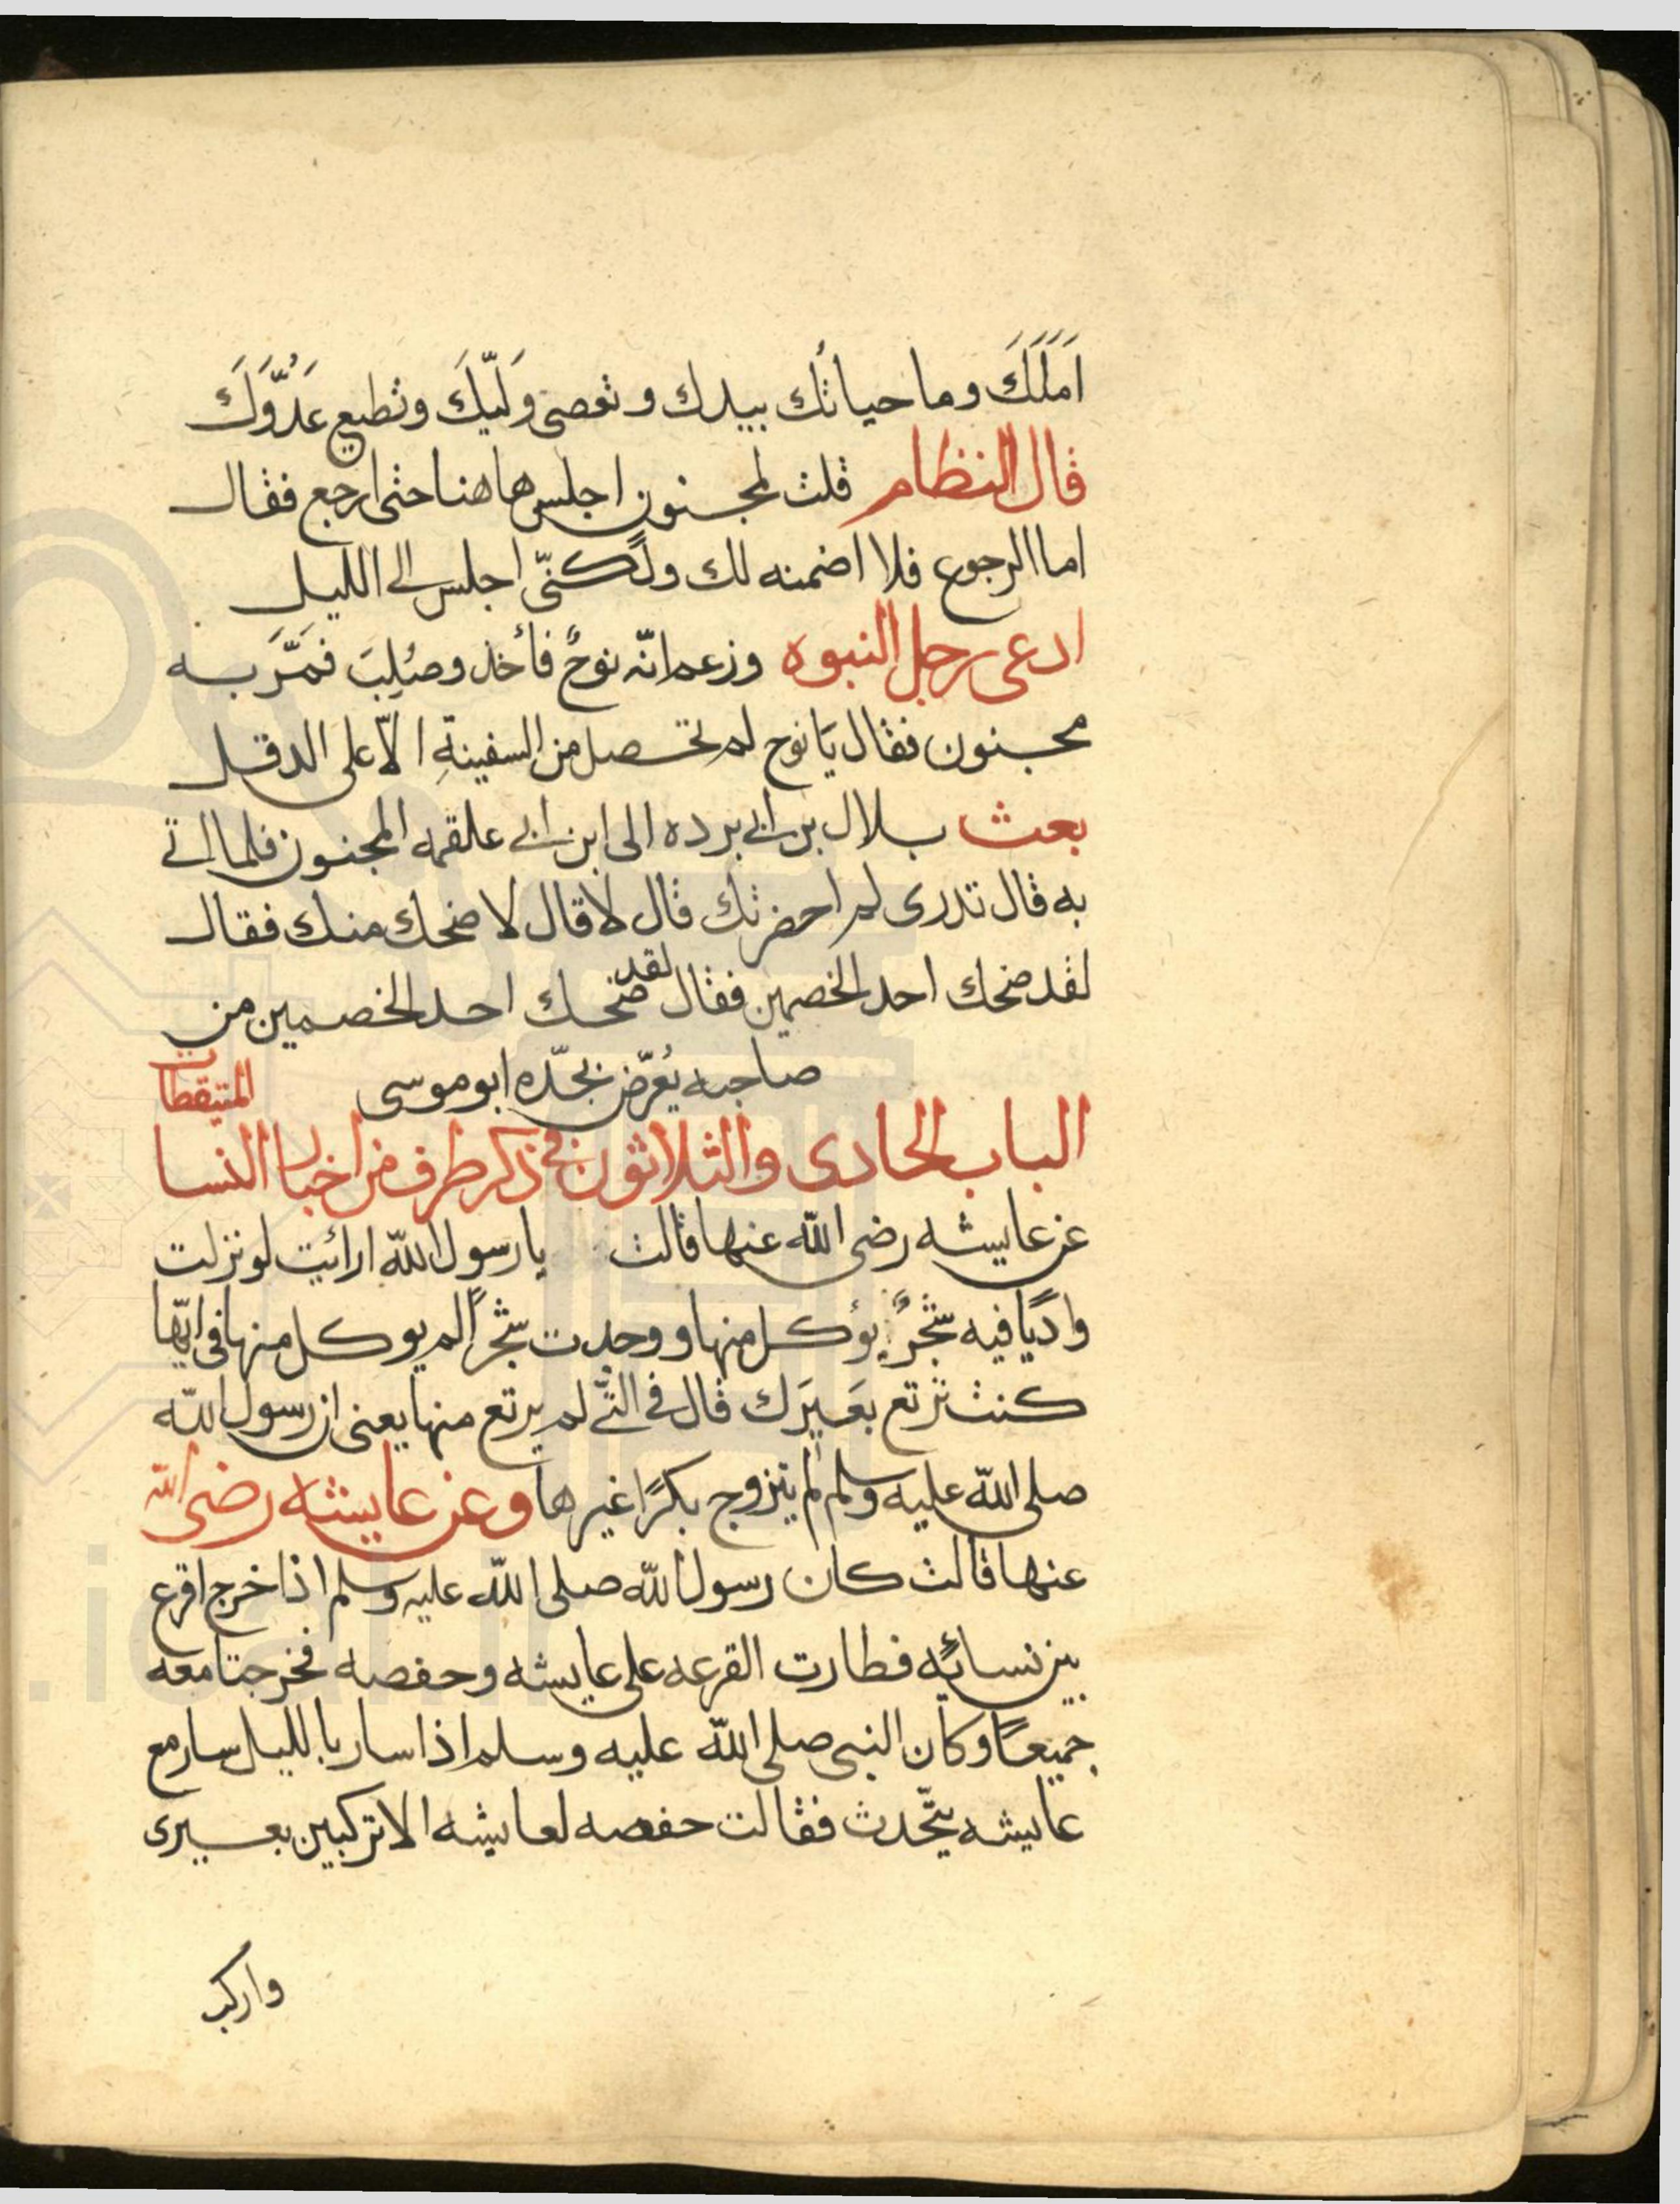 اَمَلَكَ وما حياتُك بيدك وتعصى وَليّكَ وتطيع عَدُوَّكَ
قال النظام قلت لمجنون اجلس هاهنا حتى ارجع فقال
اما الرجوع فلا اضمنه لك ولكنّى اجلس الى الليل
ادعى رجل النبوه وزعم انّه نوحٌ فأخذ وصُلِبَ فمَرَّ به
مجنون فقال يَا نوح لم تحصل من السفينةِ الّا على الدقل
بعث بلال بن ابى برده الى ابن ابى علقمه المجنون فلما اتى
به قال تدرى لم احضرتك قال لا قال لاضحك منك فقال
لقد ضحك احد الخصمين فقال لقد ضحك احد الخصمين من
صاحبه يُعرّض بجدّه ابو موسى
الباب الحادى والثلاثون فى ذكر طرف من اخبار النسا
المتيقظات
عن عايشه رضى الله عنها قالت يا رسول الله ارائيت لو نزلت
واديًا فيه شجرٌ يؤكل منها ووجدت شجرًا لم يوكل منها فى ايّها
كنت ترتع بَعيرَك قال فى التى لم يرتع منها يعنى ان رسول الله
صلى الله عليه وسلم لم يتزوج بكرًا غيرها وعن عايشه رضى الله
عنها قالت كان رسول الله صلى الله عليه وسلم اذا خرج اقرع
بين نسائه فطارت القرعه على عايشه وحفصه فخرجتا معه
جميعًا وكان النبى صلى الله عليه وسلم اذا سار بالليل سار مع
عايشه يتّحدث فقالت حفصه لعايشه الا تركبين بعيرى
واركب